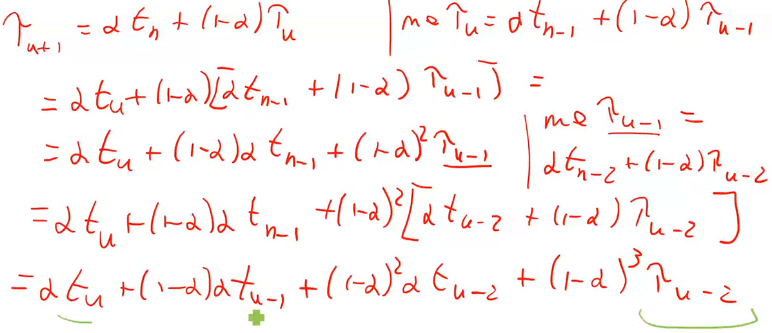 τ_{n+1} = α t_n + (1-α) τ_n | με τ_n = α t_{n-1} + (1-α) τ_{n-1}
= α t_n + (1-α) [α t_{n-1} + (1-α) τ_{n-1}] =
= α t_n + (1-α) α t_{n-1} + (1-α)^2 τ_{n-1} | με τ_{n-1} =
α t_{n-2} + (1-α) τ_{n-2}
= α t_n + (1-α) α t_{n-1} + (1-α)^2 [α t_{n-2} + (1-α) τ_{n-2}]
= α t_n + (1-α) α t_{n-1} + (1-α)^2 α t_{n-2} + (1-α)^3 τ_{n-2}